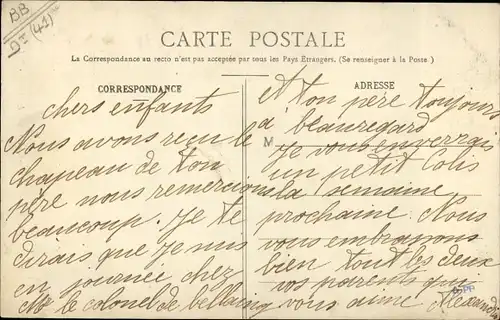 BB
DT (41)
CARTE POSTALE
La Correspondance au recto n'est pas acceptée par tous les Pays Étrangers. (Se renseigner à la Poste.)
CORRESPONDANCE
chers enfants
Nous avons reçu le
chapeau de ton
père nous remercions
beaucoup. je te
dirais que je suis
en journée chez
Me le colonel de
ADRESSE
et ton père toujours
a beauregard
M
je vous enverrai
un petit Colis
la semaine
prochaine. Nous
vous embrassons
bien tout les deux
vos parents qui
vous aime